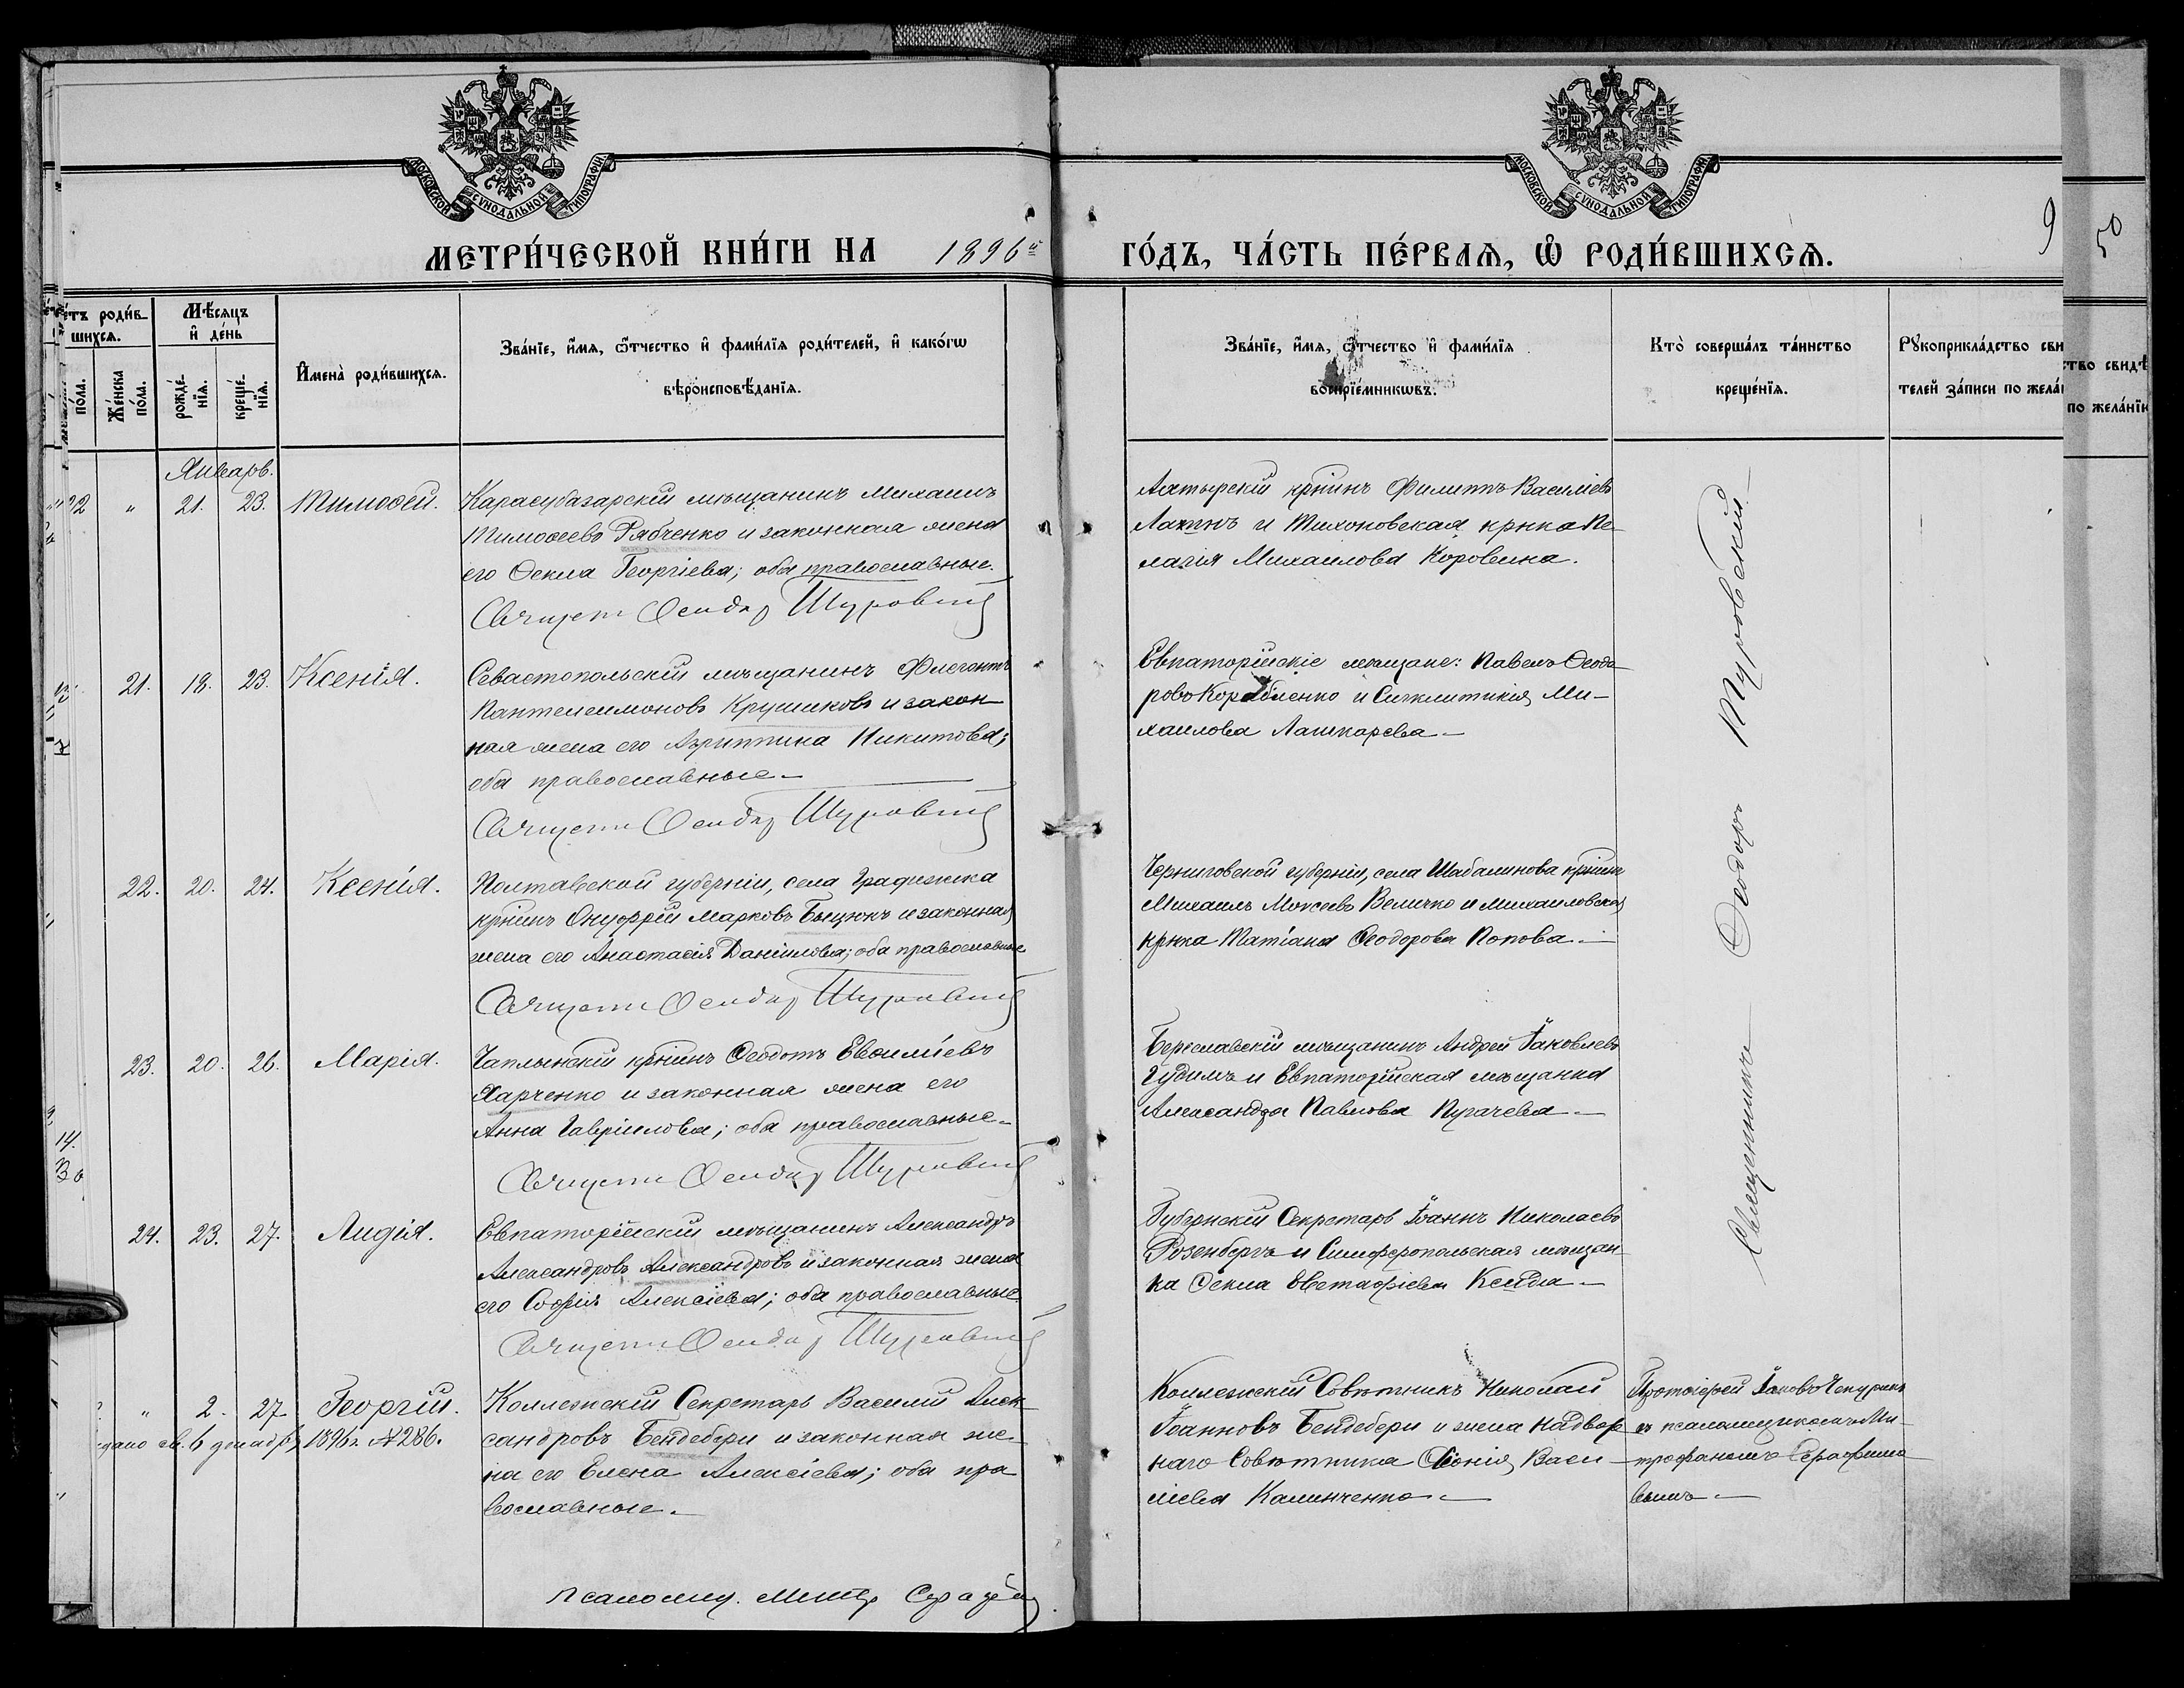 МОСКОВСКОЙ СѴНОДАЛЬНОЙ ТИПОГРАФІИ
МОСКОВСКОЙ СѴНОДАЛЬНОЙ ТИПОГРАФІИ
МЕТРИ́ЧЕСКОЙ КНИ́ГИ НА 1896й ГО́ДЪ, ЧА́СТЬ ПЕ́РВАѦ, Ѿ РОДИ́ВШИХСѦ.
9
50
роди́в-
шихсѧ.
Мѣ́сѧцъ
и҆ де́нь
по́ла.
Же́нска
по́ла.
рожде́-
нїѧ.
креще́-
нїѧ.
И҆мена̀ роди́вшихсѧ.
Зва́нїе, и҆́мѧ, ѻ҆́тчество и҆ фами́лїѧ роди́телей, и҆ како́гѡ
вѣроисповѣ́данїѧ.
Зва́нїе, и҆́мѧ, ѻ҆́тчество и҆ фами́лїѧ
воспрїе́мникѡвъ.
Кто̀ соверша́лъ та́инство
креще́нїѧ.
Рꙋкоприкла́дство сви
телей за́писи по жела́
ство свидѣ
по жела́нїю
Январь.
22 " 21. 23. Тимоѳей.
Карасубазарскій мѣщанинъ Михаилъ
Тимоѳеевъ Рябченко и законная жена
его Ѳекла Георгіева; оба православные.
Священ Ѳеодор Шуровскій
Ахтырскій крнинъ Филиппъ Василіевъ
Лахинъ и Тихоновская крнка Пе-
лагія Михаилова Коровина.
21. 18. 23. Ксенія.
Севастопольскій мѣщанинъ Флегонтъ
Пантелеимоновъ Крушиковъ и закон-
ная жена его Агриппина Никитова;
оба православные.
Священ Ѳеодор Шуровскій
Евпаторійскіе мѣщане: Павелъ Ѳеодо-
ровъ Корабленко и Синклитикія Ми-
хаилова Лашкарева
22. 20. 24. Ксенія.
Полтавской губерніи, села Градижска
крнинъ Онуфрій Марковъ Быцюкъ и законная
жена его Анастасія Даніилова; оба православные
Священ Ѳеодор Шуровскій
Черниговской губерніи, села Шабалинова крнинъ
Михаилъ Моисеевъ Величко и Михаиловская
крнка Татіана Ѳеодорова Попова.
23. 20. 26. Марія.
Чаплынскій крнинъ Ѳеодотъ Евсиліевъ
Харченко и законная жена его
Анна Гавріилова; оба православные.
Священ Ѳеодор Шуровскій
Береславскій мѣщанинъ Андрей Іаковлевъ
Гудимъ и Евпаторійская мѣщанка
Александра Павлова Пугачева
24. 23. 27. Лидія.
Евпаторійскій мѣщанинъ Александръ
Александровъ Александровъ и законная жена
его Софія Алексіева; оба православные.
Священ Ѳеодор Шуровскій
Губернскій Секретарь Іоаннъ Николаевъ
Розенбергъ и Симферопольская мѣщан-
ка Ѳекла Евстафіева Ксида
Священникъ Ѳеодоръ Шуровскій
" 2. 27 Георгій.
дано св. 6 декабря 1896 г. № 286.
Коллежскій Секретарь Василій Алек-
сандровъ Бендебери и законная же-
на его Елена Алексіева; оба пра-
вославные.
Коллежскій Совѣтникъ Николай
Іоанновъ Бендебери и жена Надвор-
наго Совѣтника Ѳеонія Васи-
ліева Калинченко
Протоіерей Іаковъ Чепуринъ
съ псаломщикомъ Ми-
трофаномъ Серафимо-
вымъ
Псаломщ. Митр Серафим